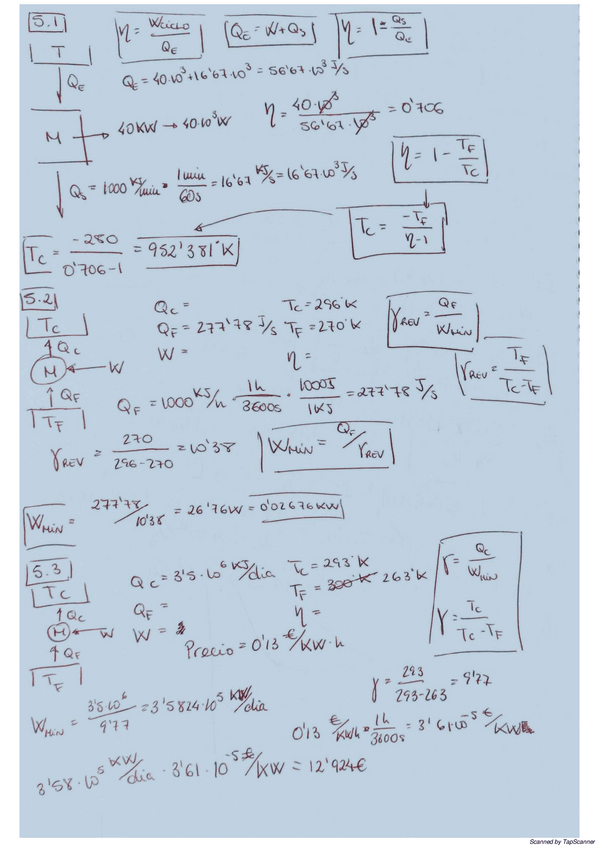 5.1
η = Wciclo/QE
QE = W + QS
η = 1 - QS/QE
T
QE
QE = 40·10³ + 16'67·10³ = 56'67·10³ J/s
M
40KW → 40·10³W
η = 40·10³/56'67·10³ = 0'706
QS = 1000 KJ/min · 1min/60s = 16'67 KJ/s = 16'67·10³ J/s
η = 1 - TF/TC
TC = -TF/η-1
TC = -280/0'706-1 = 952'381°K
5.2
TC
QC =
TC = 296°K
QC
QF = 277'78 J/s
TF = 270°K
γREV = QF/WMIN
M
W
W =
η =
γREV = TF/TC-TF
QF
TF
QF = 1000 KJ/h · 1h/3600s · 1000J/1KJ = 277'78 J/s
γREV = 270/296-270 = 10'38
WMIN = QF/γREV
WMIN = 277'78/10'38 = 26'76W = 0'02676KW
5.3
TC
QC = 3'5·10⁶ KJ/dia
TC = 293°K
γ = QC/WMIN
QC
QF =
TF = 300°K 263°K
M
W
W =
η =
γ = TC/TC-TF
QF
Precio = 0'13 €/KW·h
TF
γ = 293/293-263 = 9'77
WMIN = 3'5·10⁶/9'77 = 3'5824·10⁵ KW/dia
0'13 €/KWh · 1h/3600s = 3'61·10⁻⁵ €/KW
3'58·10⁵ KW/dia · 3'61·10⁻⁵ €/KW = 12'924€
Scanned by TapScanner